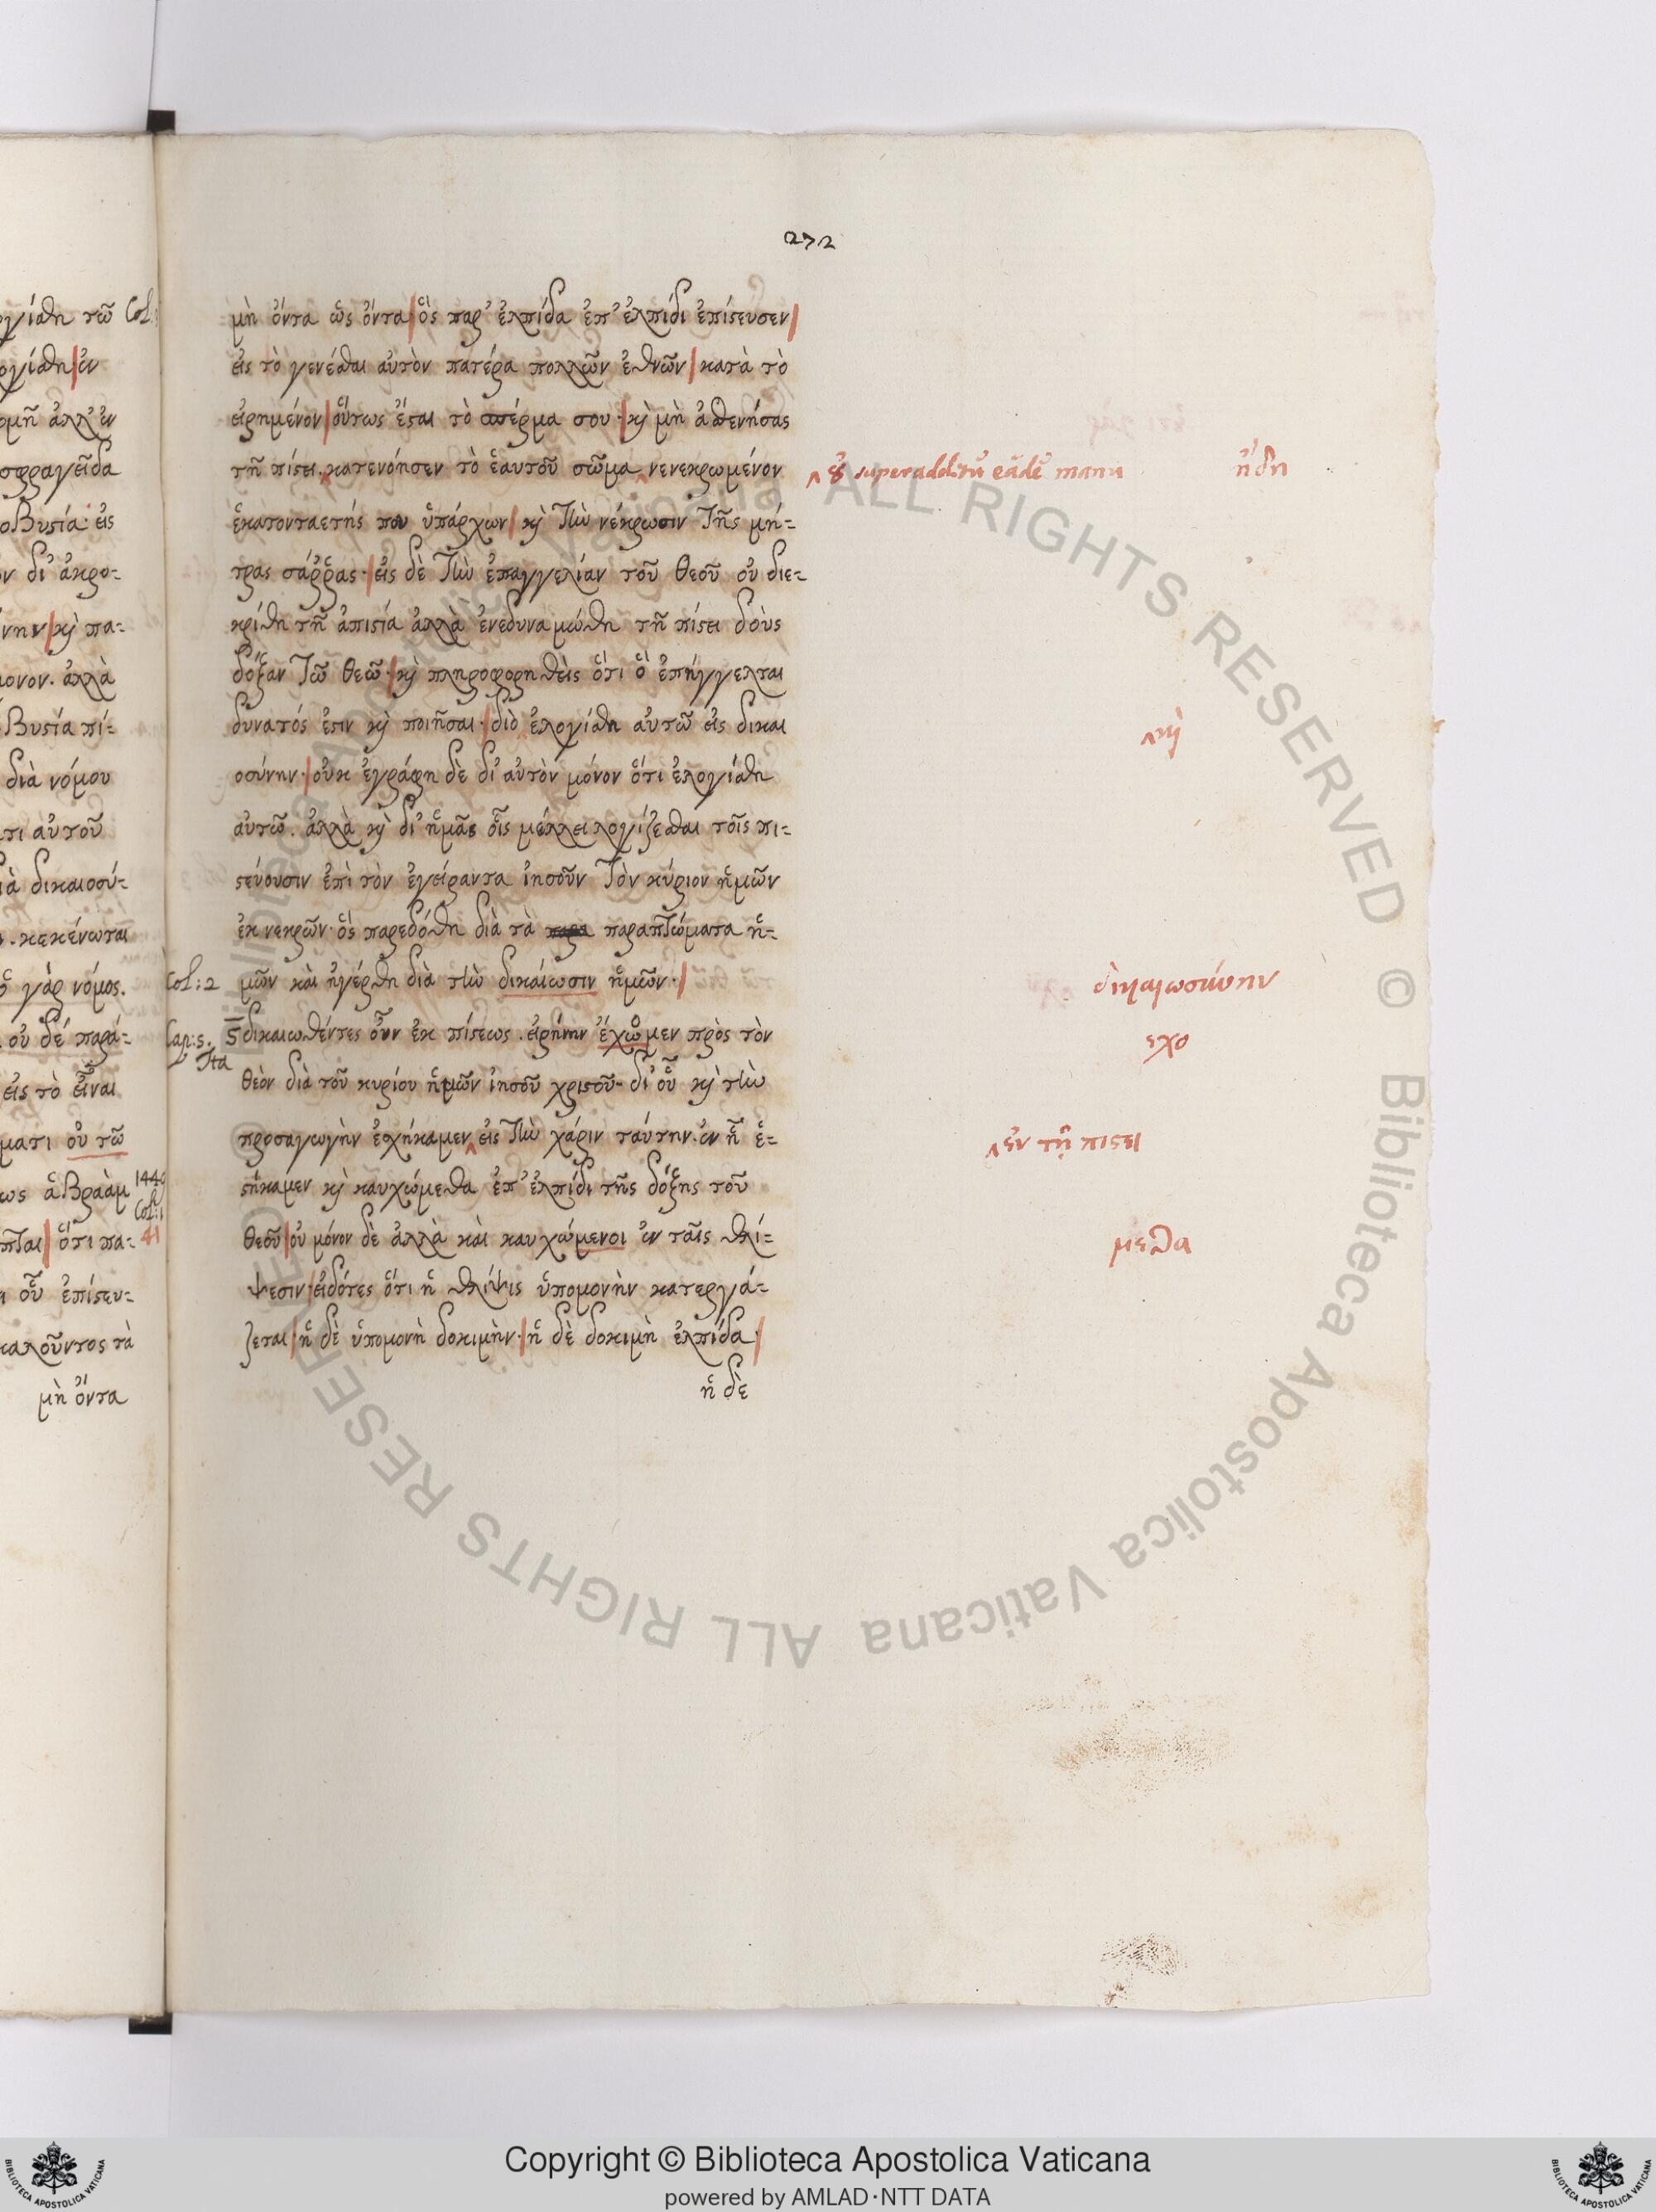 272
μὴ ὄντα ὡς ὄντα| ὃς παρ' ἐλπίδα ἐπ' ἐλπίδι ἐπίστευσεν|
εἰς τὸ γενέσθαι αὐτὸν πατέρα πολλῶν ἐθνῶν| κατὰ τὸ
εἰρημένον| οὕτως ἔσται τὸ σπέρμα σου·| κὴ μὴ ἀσθενήσας
τῆ πίστει. κατενόησεν τὸ ἑαυτοῦ σῶμα ‸ νενεκρωμένον
‸ superadditũ eãdẽ manu ἤδη
ἑκατονταετής που ὑπάρχων| κὴ τὴν νέκρωσιν τῆς μή-
τρας σάρρας·| εἰς δὲ τὴν ἐπαγγελίαν τοῦ θεοῦ οὐ διε-
κρίθη τῆ ἀπιστία ἀλλὰ ἐνεδυναμώθη τῆ πίστει δοὺς
δόξαν τῶ θεῶ·| κὴ πληροφορηθεὶς ὅτι ὃ ἐπήγγελται
δυνατός ἐστιν κὴ ποιῆσαι·| διὸ ἐλογίσθη αὐτῶ εἰς δικαι
‸κὴ
οσύνην·| οὐκ ἐγράφη δὲ δι' αὐτὸν μόνον ὅτι ἐλογίσθη
αὐτῶ. ἀλλὰ κὴ δι' ἡμᾶς οἷς μέλλει λογίζεσθαι τοῖς πι-
στεύουσιν ἐπὶ τὸν ἐγείραντα ἰησοῦν τὸν κύριον ἡμῶν
ἐκ νεκρῶν· ὃς παρεδόθη διὰ τὰ παρα παραπτώματα ἡ-
Col: 2 μῶν καὶ ἠγέρθη διὰ τὴν δικαίωσιν ἡμῶν·|
δικαιωσύνην
Cap: 5. δικαιωθέντες οὖν ἐκ πίστεως. εἰρήνην ἔχωμεν πρὸς τὸν
ο
εχο
Ita
θεὸν διὰ τοῦ κυρίου ἡμῶν ἰησοῦ χριστοῦ· δι' οὗ κὴ τὴν
προσαγωγὴν ἐσχήκαμεν ‸ εἰς τὴν χάριν ταύτην. ἐν ἧ ἑ-
‸ἐν τῇ πιστει
στήκαμεν κὴ καυχώμεθα ἐπ' ἐλπίδι τῆς δόξης τοῦ
θεοῦ| οὐ μόνον δὲ ἀλλὰ καὶ καυχώμενοι ἐν ταῖς θλί-
μεθα
ψεσιν·| εἰδότες ὅτι ἡ θλίψις ὑπομονὴν κατεργά-
ζεται| ἡ δὲ ὑπομονὴ δοκιμὴν·| ἡ δὲ δοκιμὴ ἐλπίδα·|
ἡ δὲ
ογίσθη τῶ Col:
ογίσθη| ἐν
ομῆ ἀλλ' ἐν
σφραγεῖδα
οβυστία· εἰς
ν δι' ἀκρο-
νην| κὴ πα-
μονον. ἀλλὰ
βυστία πί-
διὰ νόμου
τι αὐτοῦ
ιὰ δικαιοσύ-
. κεκένωται
γὰρ νόμος.
οὐ δέ παρά-
εἰς τὸ εἶναι
ματι οὐ τῶ
ως ἀβραὰμ 144
Col: 1
πται| ὅτι πα- 41
οὗ ἐπίστευ-
καλοῦντος τὰ
μὴ ὄντα
© Biblioteca Apostolica Vaticana ALL RIGHTS RESERVED © Biblioteca Apostolica Vaticana ALL RIGHTS RESERVED
BIBLIOTECA APOSTOLICA VATICANA
Copyright © Biblioteca Apostolica Vaticana
powered by AMLAD·NTT DATA
BIBLIOTECA APOSTOLICA VATICANA